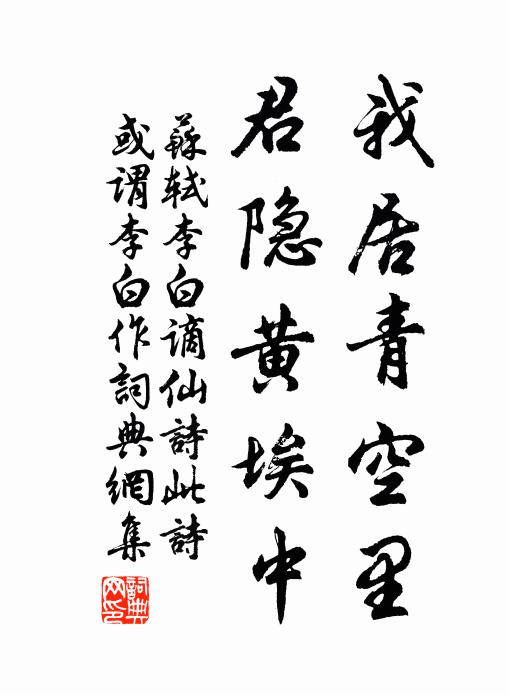 我居青空里
君隐黄埃中
蘇軾李白謫仙詩此詩
或謂李白作詞典網集
詞典網印